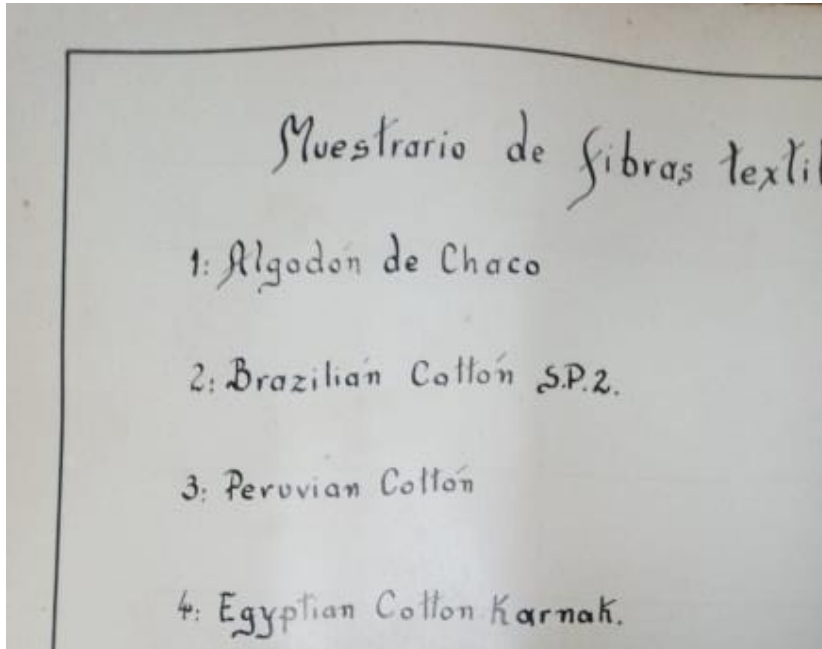 Muestrario de fibras textil
1: Algodón de Chaco
2: Brazilián Cottón S.P.2.
3: Peruvian Cottón
4: Egyptian Cotton Karnak.